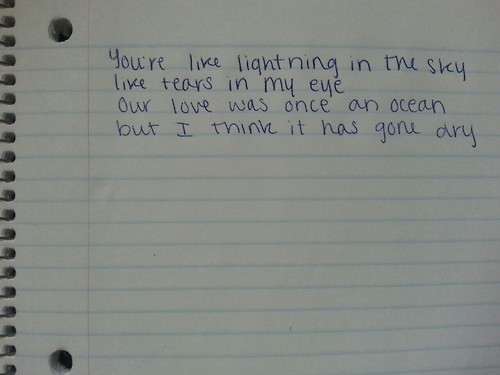 You're like lightning in the sky
like tears in my eye
Our love was once an ocean
but I think it has gone dry